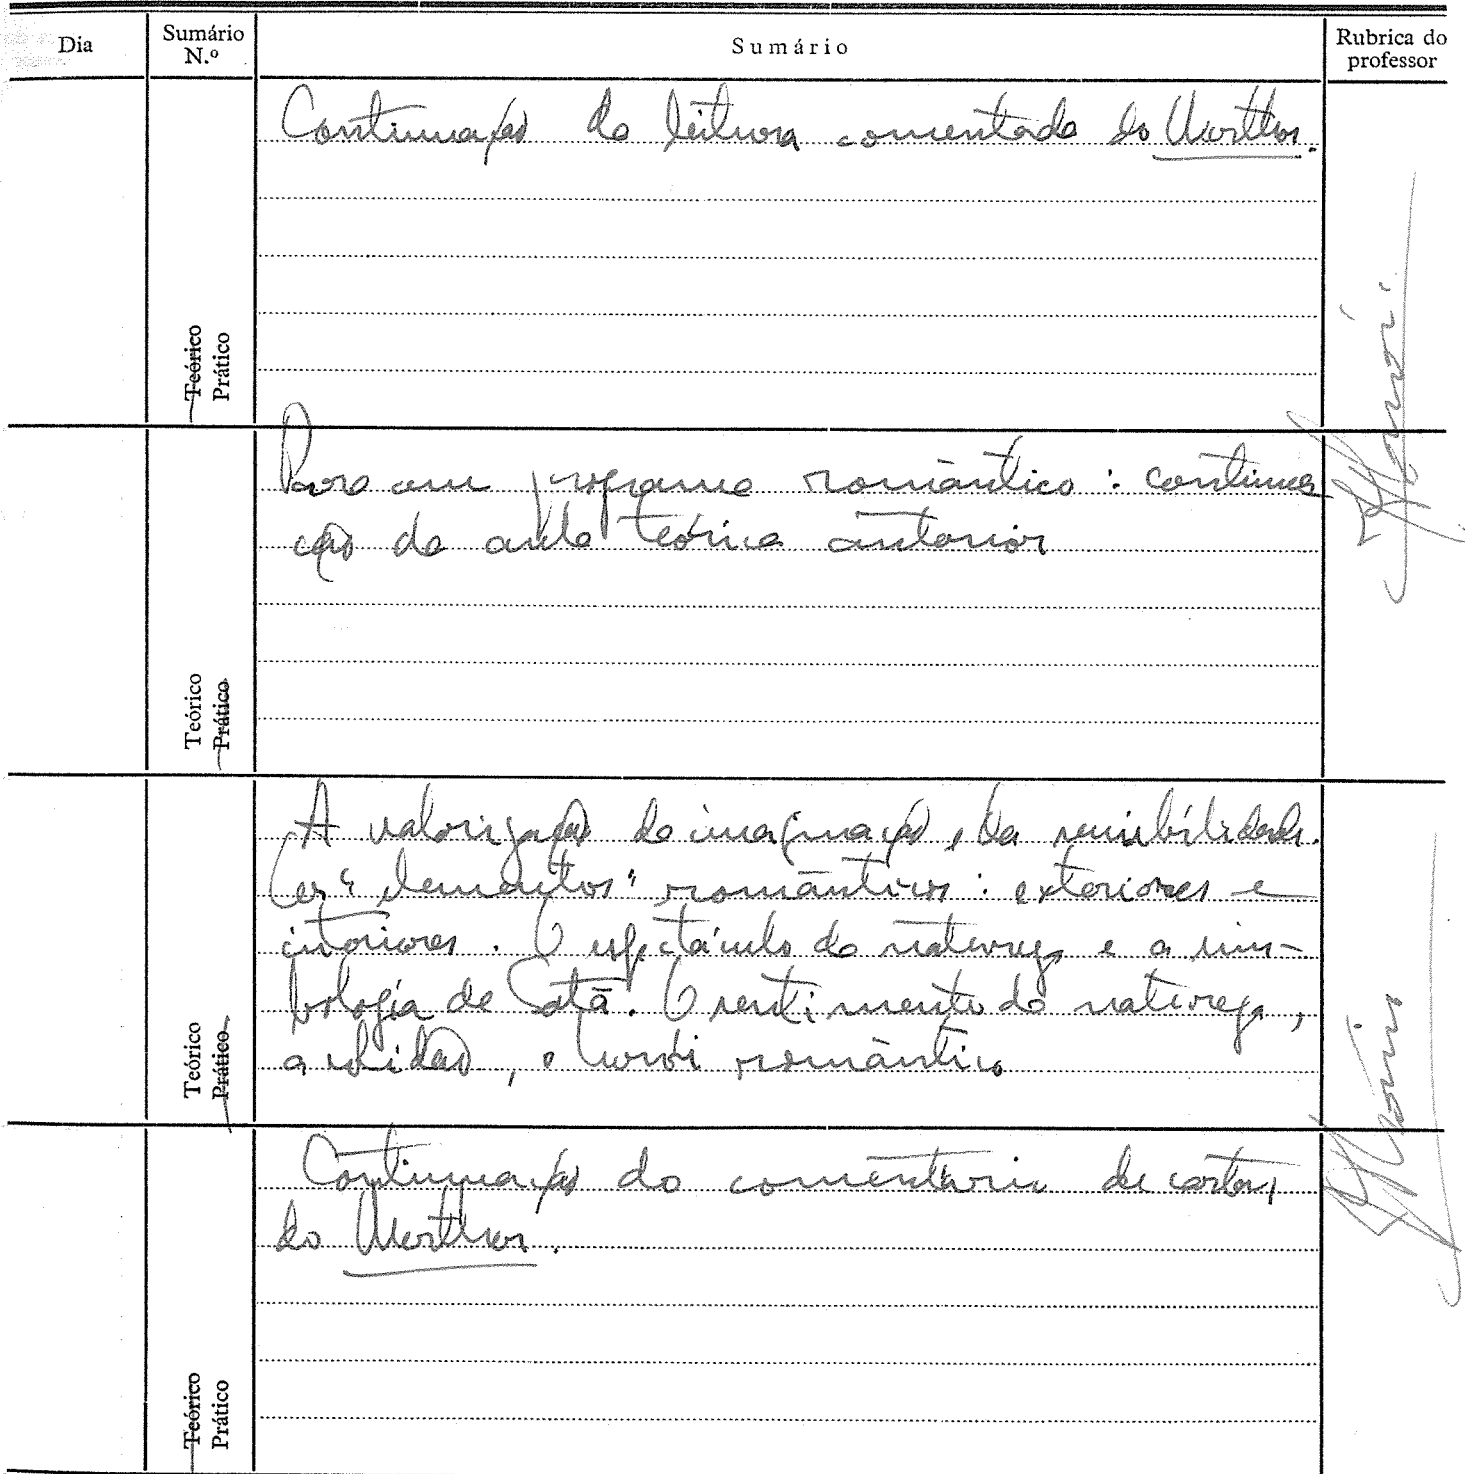 Dia
Sumário
N.º
Sumário
Rubrica do
professor
Continuação da leitura comentada do Werther.
Teórico
Prático
Para um programa romântico : continua
ção da aula teórica anterior
Teórico
Prático
A valorização da imaginação, da sensibilidade.
Os "elementos" românticos : exteriores e
interiores. O espectáculo da natureza e a sim-
bologia de Satã. O sentimento da natureza,
a solidão, o herói romântico
Teórico
Prático
Continuação do comentário de cartas
do Werther.
Teórico
Prático